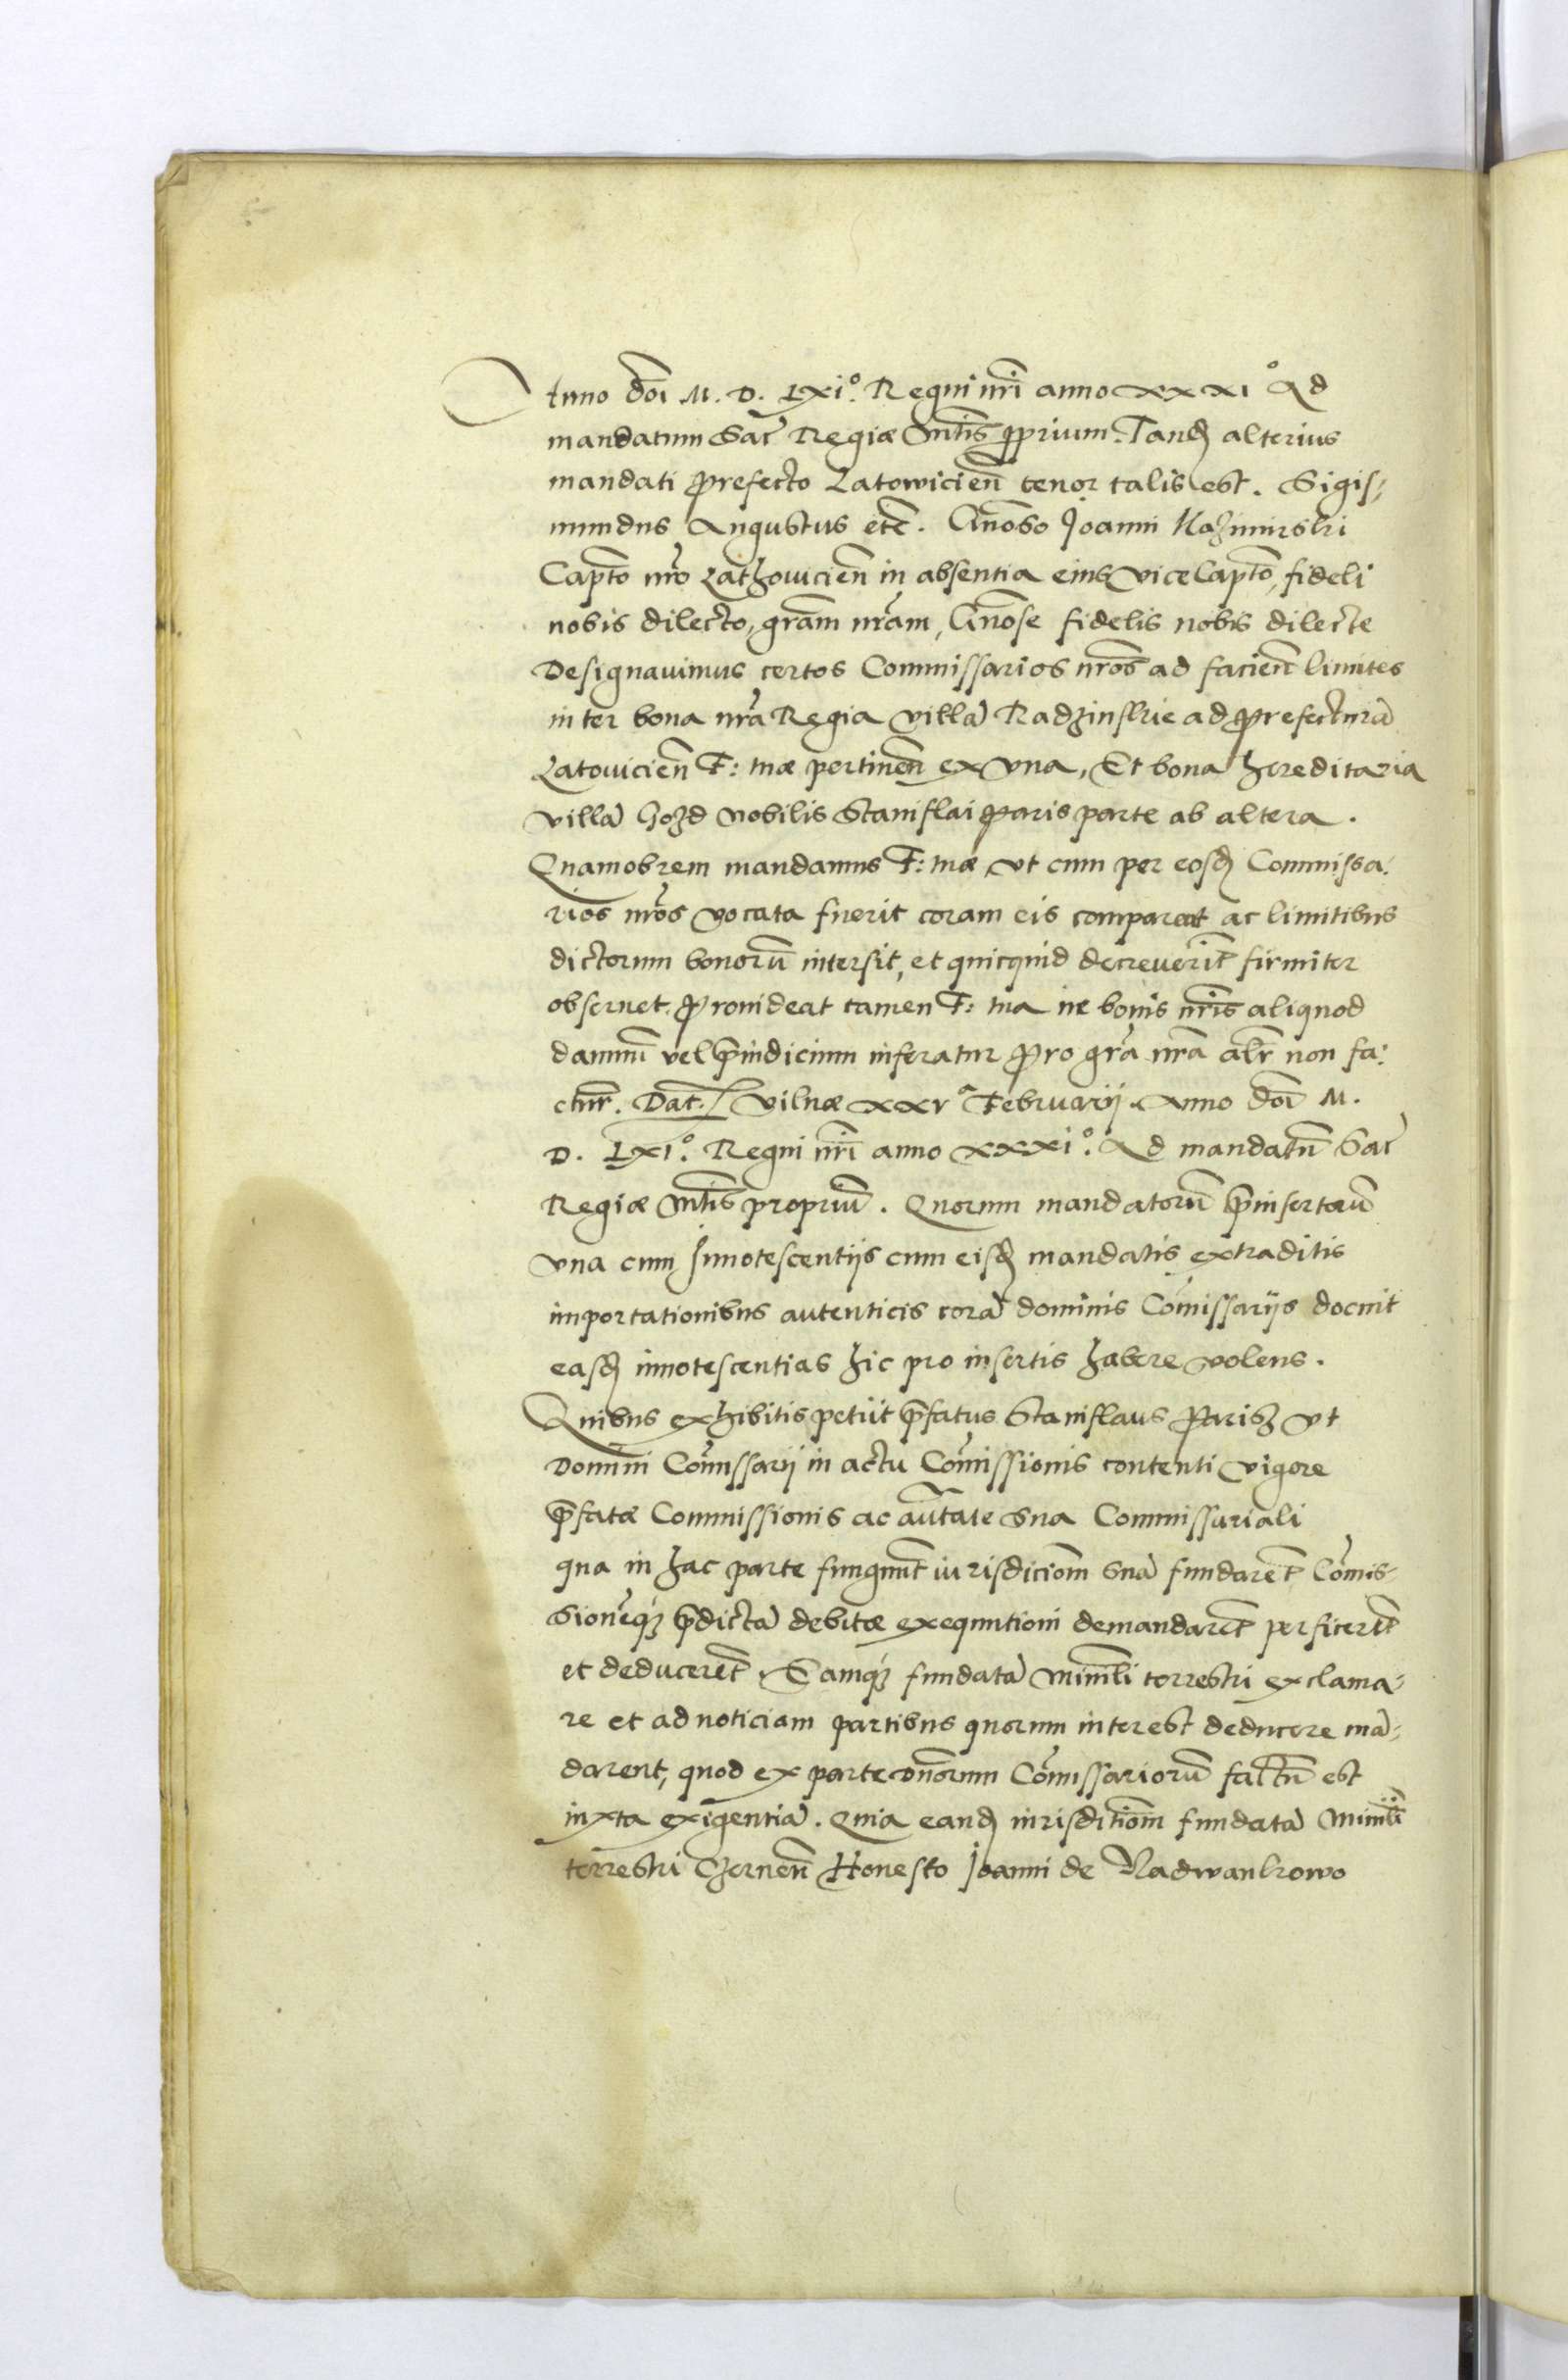 Anno doī M. D. LXIº. Regni nr̄i anno XXXIº Ad
mandatum Sac̄ Regiæ Mtīs ꝓprium. Tandē alterius
mandati Prefecto Latowicieñ tenor talis est. Sigis⸗
mundus Augustus etc̄. Gn̄oso Joanni Kazimirski
Capt̄o nr̄o Lathouicień in absentia eius ViceCapt̄o, fideli
nobis dilecto, gr̄am nr̄am, Gn̄ose fidelis nobis dilecte
Designauimus certos Commissarios nr̄os ad facień limites
inter bona nr̄a Regia villā Radzinskie ad Prefecturā
Latouicień F: tuæ pertineń ex vna, Et bona hereditaria
villā Gozd Nobilis Stanislai Paris parte ab altera.
Quamobrem mandamus F: tuæ vt cum per eosdē Commissa⸗
rios nr̄os vocata fuerit coram eis compareat ac limitibus
dictorum bonorū intersit, et quicquid decreuerīt firmiter
obseruet. Prouideat tamen F: tua ne bonis nr̄is aliquod
damnū vel p̄iudicium inferatur Pro gr̄a nr̄a alr̄ non fa⸗
ctur̄. Dat̄. Vilnæ XXVª Februarij. Anno doī M.
D. LXIº. Regni nr̄i anno XXXIº. Ad mandatū Sac̄
Regiæ Mtīs propriū. Quorum mandatorū p̄insertorū
vna cum Innotescentijs cum eisdē mandatis extraditis
importationibus autenticis corā dominis Com̄issarijs docuit
easdē innotescentias hic pro insertis habere volens.
Quibus exhibitis petijt p̄fatus Stanislaus Parisz vt
Domini Com̄issarij in actu Com̄issionis contenti vigore
p̄fatæ Commissionis ac autt̄ate sua Commissariali
qua in hac parte fungunt̄ iurisdiciom̄ suā fundarēt Com̄is⸗
sionēq̨ p̄dictā debitæ exequutioni demandarēt perficerēt
et deducerēt. Eamq̨ fundatā Minr̄li terrestri exclama⸗
re et ad noticiam partibus quorum interest deducere mā⸗
darent, quod ex parte Dn̄orum Com̄issariorū factū est
iuxta exigentiā. Quia eandē iurisditiom̄ fundatā Minr̄li
terrestri Czerneń Honesto Joanni de Nadwankowo